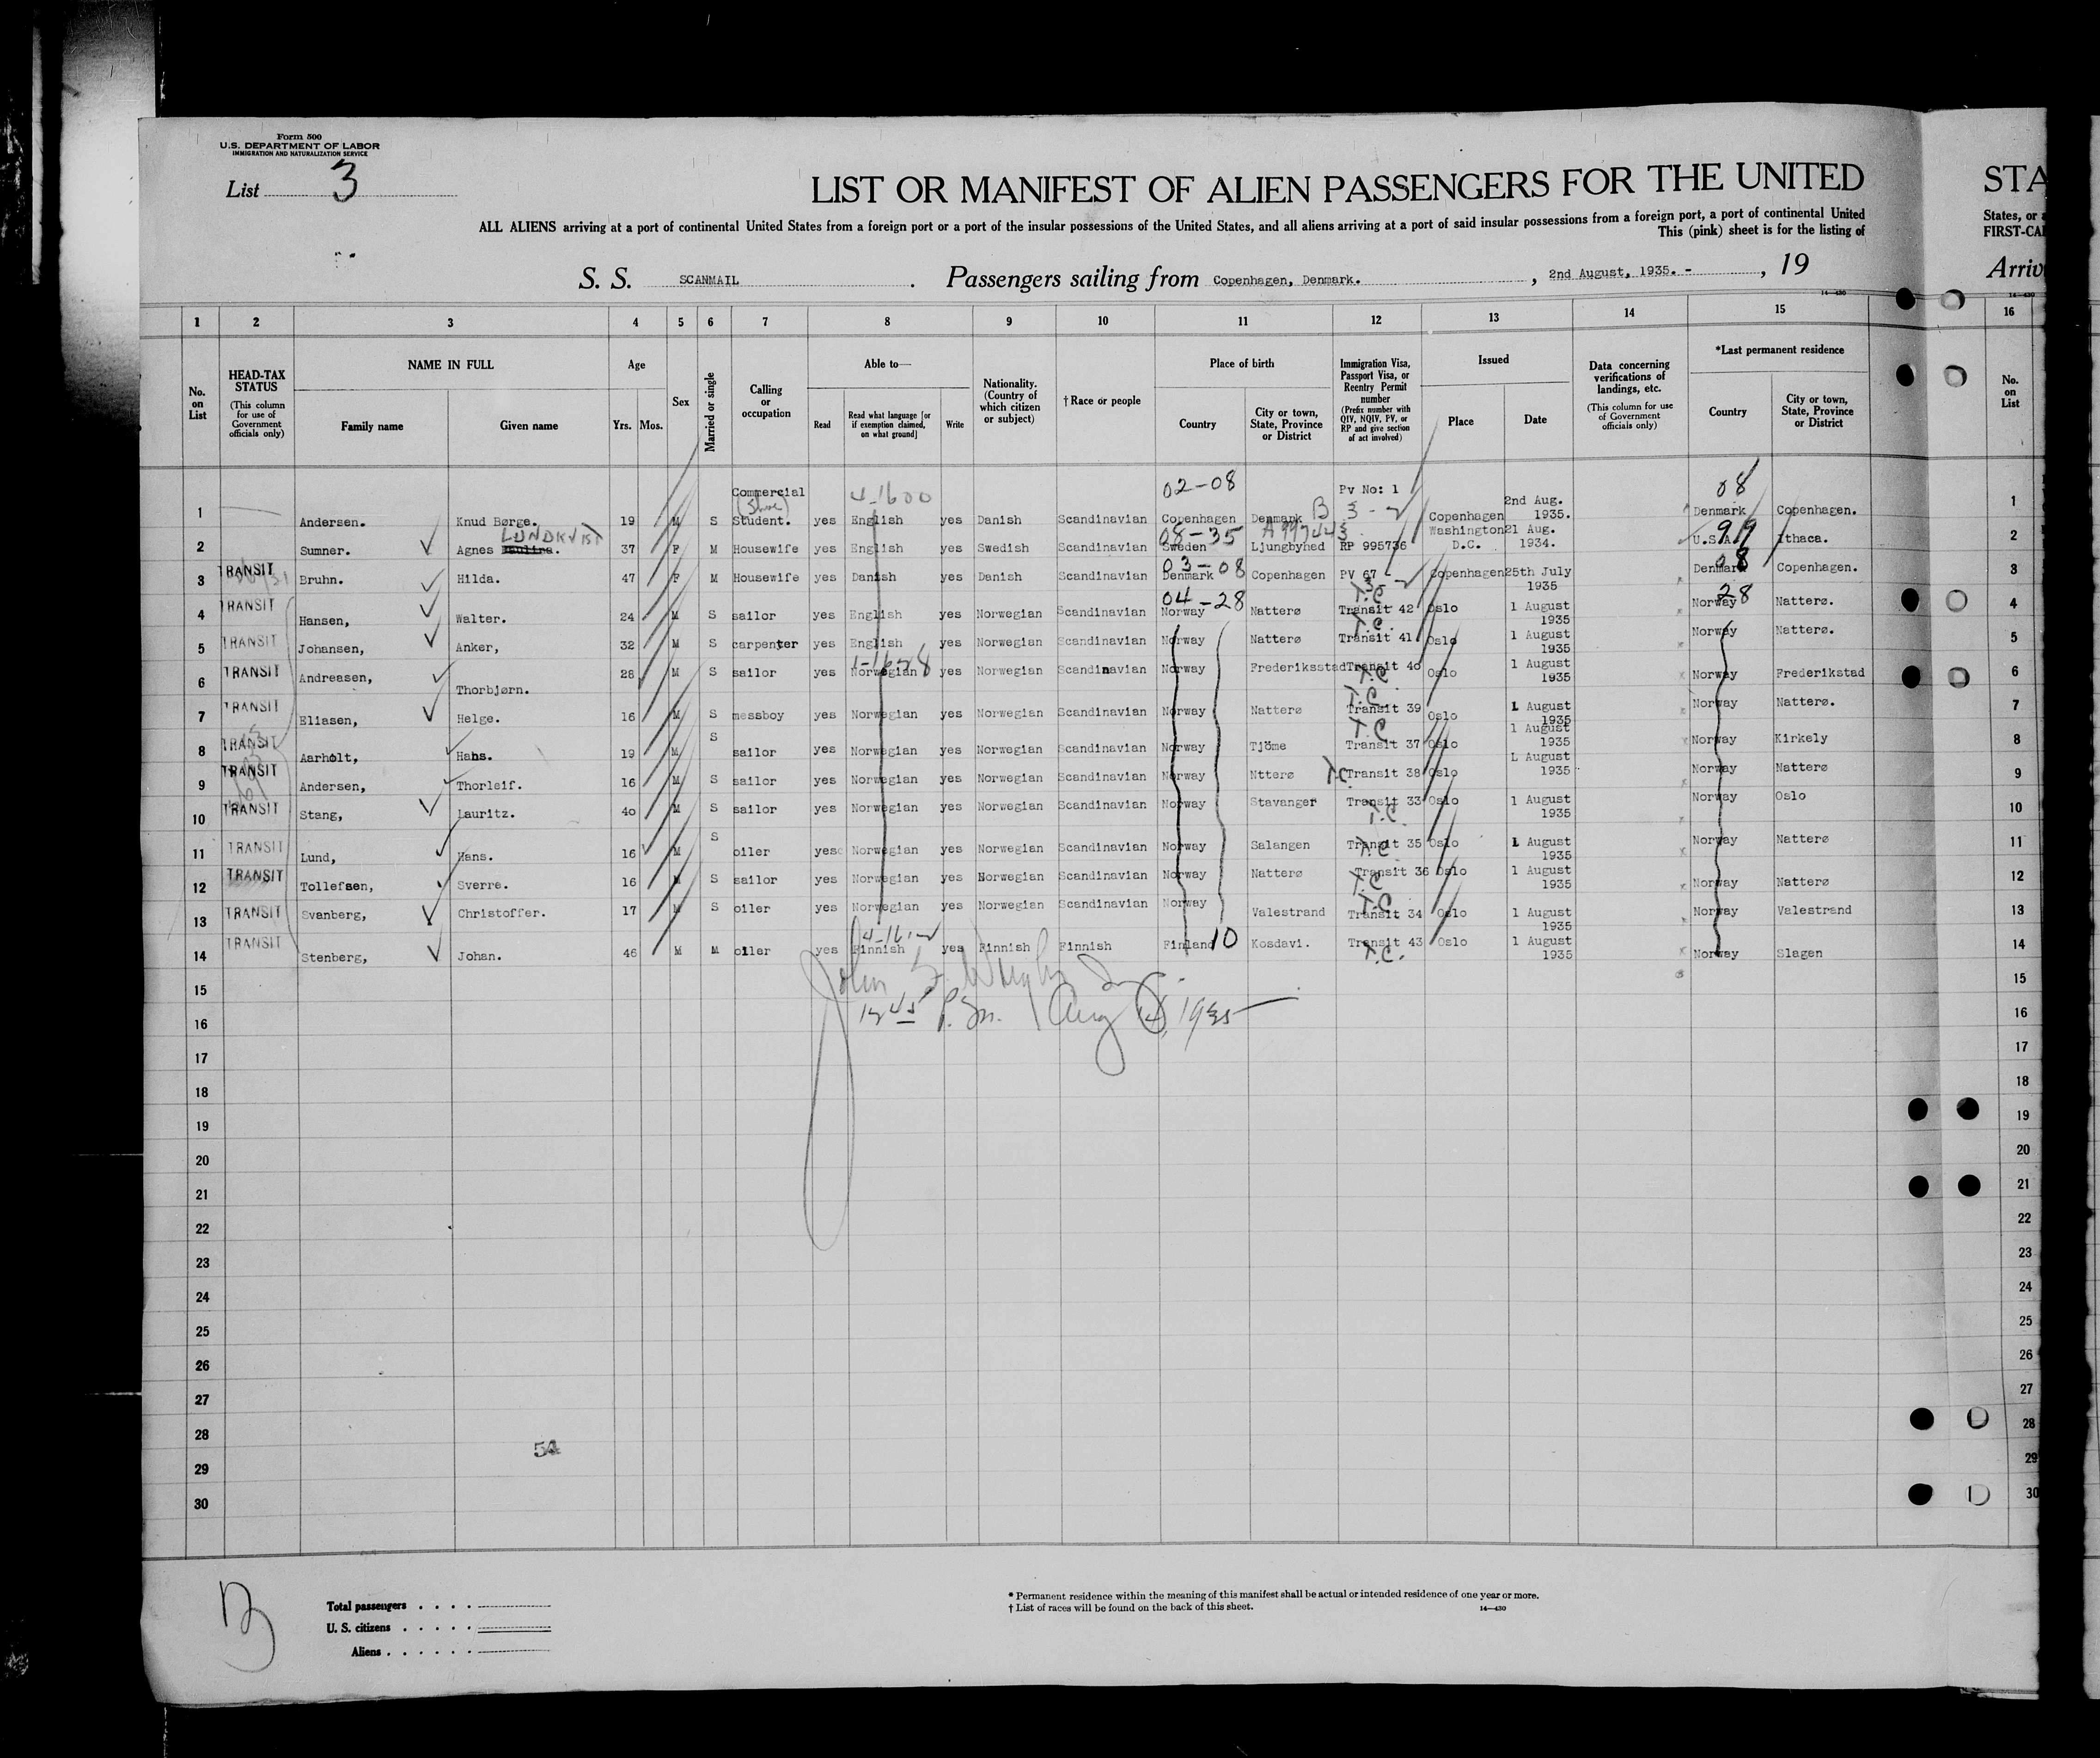 Form 500
U.S. DEPARTMENT OF LABOR
IMMIGRATION AND NATURALIZATION SERVICE
List 3
LIST OR MANIFEST OF ALIEN PASSENGERS FOR THE UNITED STA
ALL ALIENS arriving at a port of continental United States from a foreign port or a port of the insular possessions of the United States, and all aliens arriving at a port of said insular possessions from a foreign port, a port of continental United States, or a
This (pink) sheet is for the listing of FIRST-CA
S. S. SCANMAIL . Passengers sailing from Copenhagen, Denmark. , 2nd August, 1935. - , 19 Arriv
1 2 3 4 5 6 7 8 9 10 11 12 13 14 15 16
No. on List
HEAD-TAX STATUS (This column for use of Government officials only)
NAME IN FULL Family name Given name
Age Yrs. Mos.
Sex
Married or single
Calling or occupation
Able to— Read Read what language [or if exemption claimed, on what ground] Write
Nationality. (Country of which citizen or subject)
† Race or people
Place of birth Country City or town, State, Province or District
Immigration Visa, Passport Visa, or Reentry Permit number (Prefix number with QIV, NQIV, PV, or RP and give section of act involved)
Issued Place Date
Data concerning verifications of landings, etc. (This column for use of Government officials only)
*Last permanent residence Country City or town, State, Province or District
No. on List
1 Andersen. Knud Børge. 19 M S Commercial (Shoe) Student. yes 4-1600 English yes Danish Scandinavian 02-08 Copenhagen Denmark B Pv No: 1 3-2 Copenhagen 2nd Aug. 1935. 08 Denmark Copenhagen. 1
2 Sumner. Agnes LUNDKVIST 37 F M Housewife yes English yes Swedish Scandinavian 08-35 Sweden Ljungbyhed A997443 RP 995736 Washington D.C. 21 Aug. 1934. 99 U.S.A. Ithaca. 2
3 TRANSIT Bruhn. Hilda. 47 F M Housewife yes Danish yes Danish Scandinavian 03-08 Denmark Copenhagen PV 67 Copenhagen 25th July 1935 08 Denmark Copenhagen. 3
4 TRANSIT Hansen, Walter. 24 M S sailor yes English yes Norwegian Scandinavian 04-28 Norway Natterø T.C. Transit 42 Oslo 1 August 1935 28 Norway Natterø. 4
5 TRANSIT Johansen, Anker, 32 M S carpenter yes English yes Norwegian Scandinavian Norway Natterø T.C. Transit 41 Oslo 1 August 1935 Norway Natterø. 5
6 TRANSIT Andreasen, Thorbjørn. 28 M S sailor yes 1-1628 Norwegian yes Norwegian Scandinavian Norway Frederiksstad Transit 40 T.C. Oslo 1 August 1935 Norway Frederikstad 6
7 TRANSIT Eliasen, Helge. 16 M S messboy yes Norwegian yes Norwegian Scandinavian Norway Natterø T.C. Transit 39 Oslo 1 August 1935 Norway Natterø. 7
8 TRANSIT Aarholt, Hans. 19 M S sailor yes Norwegian yes Norwegian Scandinavian Norway Tjöme T.C Transit 37 Oslo 1 August 1935 Norway Kirkely 8
9 TRANSIT Andersen, Thorleif. 16 M S sailor yes Norwegian yes Norwegian Scandinavian Norway Ntterø T.C. Transit 38 Oslo L August 1935 Norway Natterø 9
10 TRANSIT Stang, Lauritz. 40 M S sailor yes Norwegian yes Norwegian Scandinavian Norway Stavanger Transit 33 T.C. Oslo 1 August 1935 Norway Oslo 10
11 TRANSIT Lund, Hans. 16 M S oiler yes Norwegian yes Norwegian Scandinavian Norway Salangen Transit 35 T.C Oslo 1 August 1935 Norway Natterø 11
12 TRANSIT Tollefsen, Sverre. 16 M S sailor yes Norwegian yes Norwegian Scandinavian Norway Natterø Transit 36 T.C Oslo 1 August 1935 Norway Natterø 12
13 TRANSIT Svanberg, Christoffer. 17 M S oiler yes Norwegian yes Norwegian Scandinavian Norway Valestrand T.C Transit 34 Oslo 1 August 1935 Norway Valestrand 13
14 TRANSIT Stenberg, Johan. 46 M M oiler yes Finnish yes Finnish Finnish Finland 10 Kosdavi. Transit 43 T.C. Oslo 1 August 1935 Norway Slagen 14
15 John 15
16 P.m. Aug 1935 16
17 17
18 18
19 19
20 20
21 21
22 22
23 23
24 24
25 25
26 26
27 27
28 54 28
29 29
30 30
Total passengers
U. S. citizens
Aliens
* Permanent residence within the meaning of this manifest shall be actual or intended residence of one year or more.
† List of races will be found on the back of this sheet.
14—430